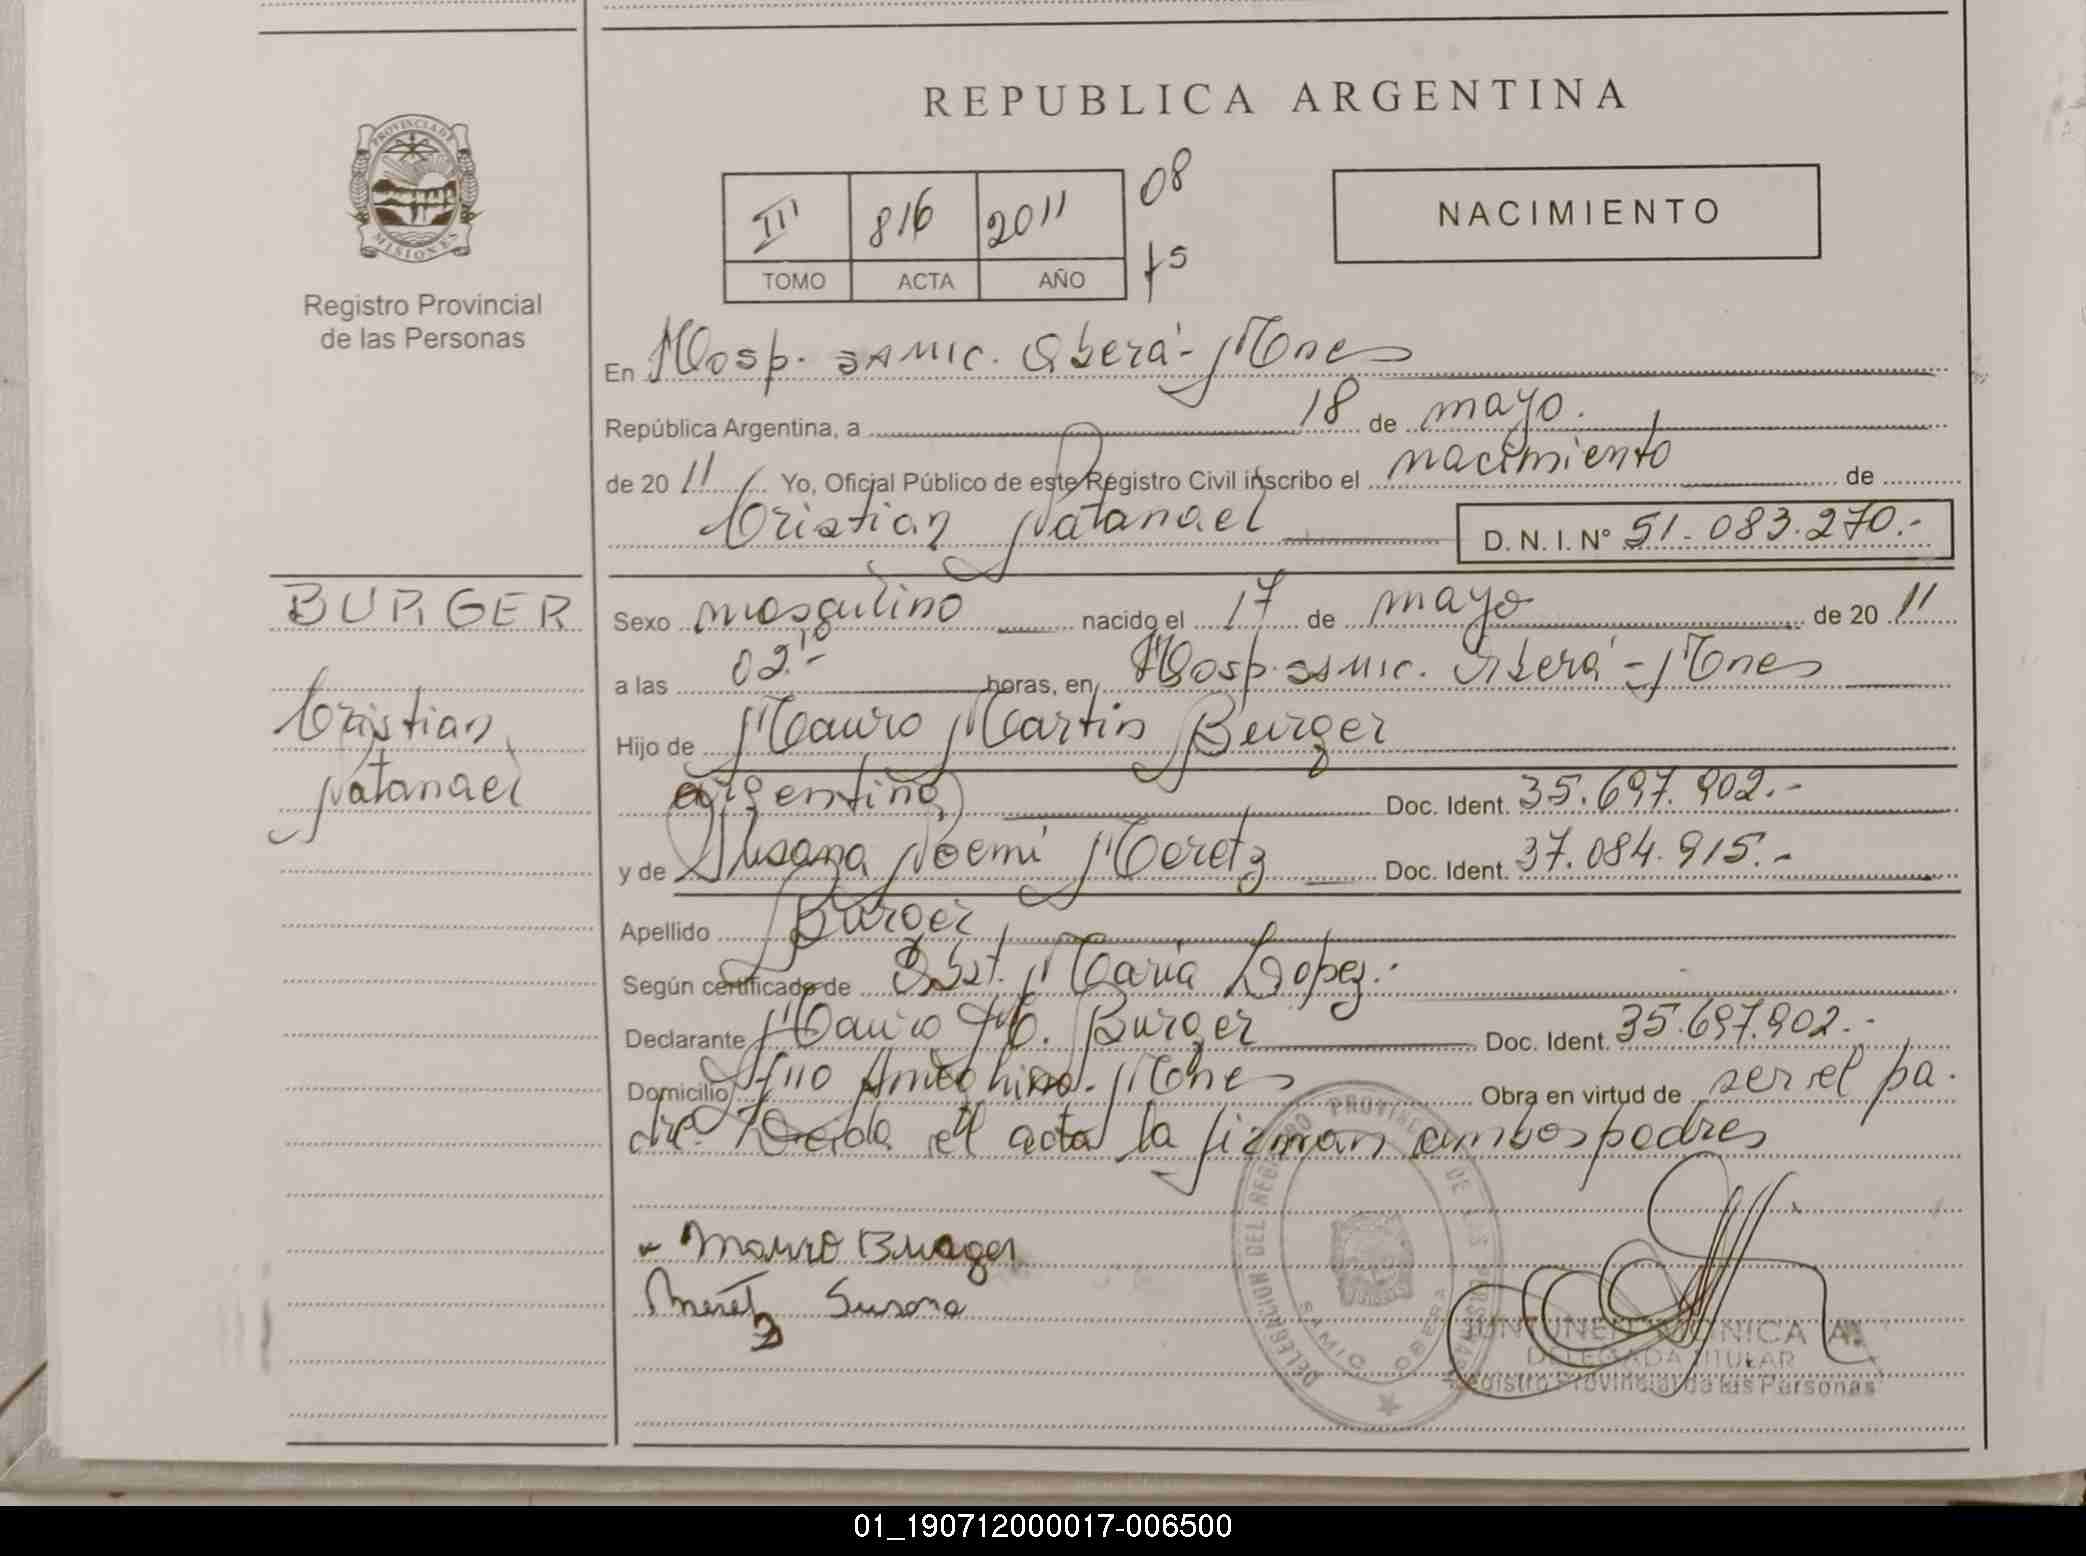 REPUBLICA ARGENTINA
PROVINCIA DE MISIONES
Registro Provincial
de las Personas
III 816 2011 08
TOMO ACTA AÑO f5
NACIMIENTO
En Hosp. SAMIC. Oberá - Mnes
República Argentina, a 18 de mayo.
de 20 11 Yo, Oficial Público de este Registro Civil inscribo el nacimiento de
Cristian Natanael D. N. I. N° 51.083.270.-
BURGER
Cristian
Natanael
Sexo masculino nacido el 17 de mayo de 20 11
a las 02.10 - horas, en Hosp. SAMIC. Oberá - Mnes
Hijo de Mauro Martin Burger
argentino Doc. Ident. 35.697.902.-
y de Susana Noemi Meretz Doc. Ident. 37.084.915.-
Apellido Burger
Según certificado de Obst. Maria Lopez.
Declarante Mauro M. Burger Doc. Ident. 35.697.902.-
Domicilio Ameghino - Mnes Obra en virtud de ser el pa-
dre. Leida el acta la firman ambos padres
Mauro Burger
Meretz Susana
DELEGACION DEL REGISTRO PROVINCIAL DE LAS PERSONAS
SAMIC OBERA
MONICA A.
DELEGADA TITULAR
Registro Provincial de las Personas
01_190712000017-006500